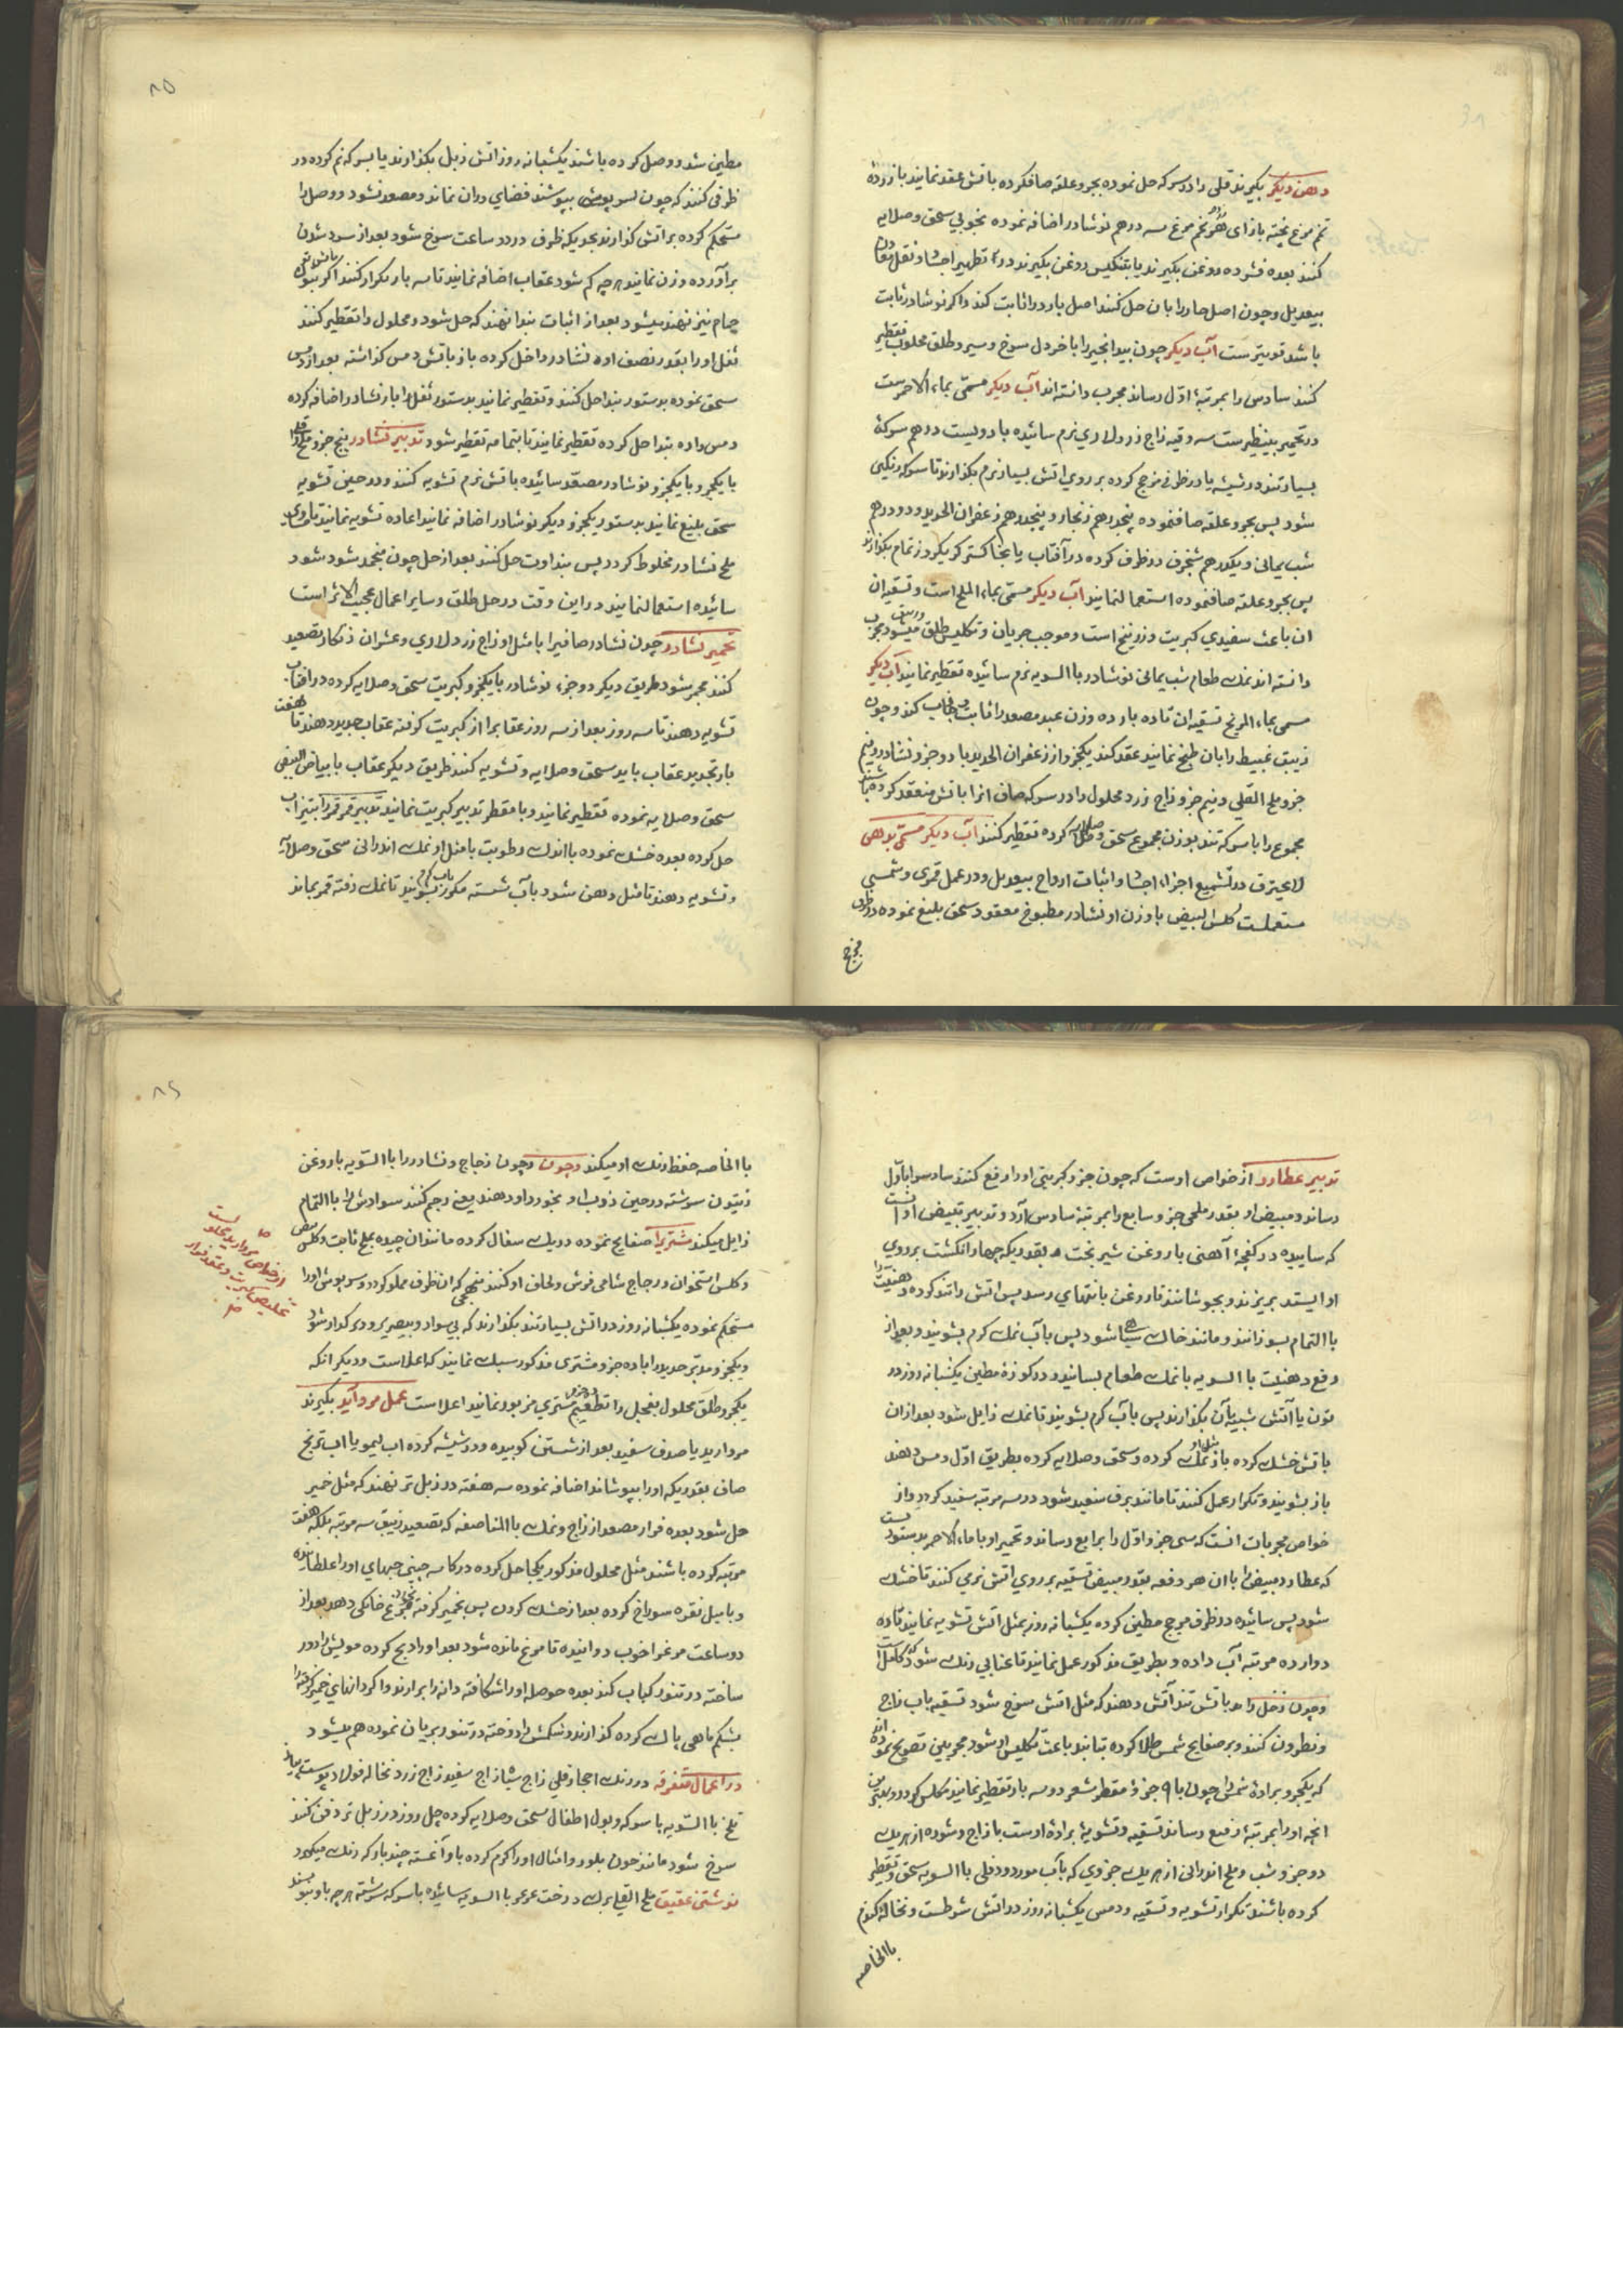 دهن دیگر بگیرند قلی را در سرکه حل نموده بجر و علقه صافکرده باتش عقد نمایند باز زرده
تخم مرغ پخته بازای هر تخم مرغ سه درهم نوشادر اضافه نموده بخوبی سحق و صلایه
کنند بعده فشرده روغن بگیرند یا بتنکیس روغن بگیرند در تطهیر اجساد و نقل
بیعدیل و چون اصل حار را بان حل کنند اصل بارد را ثابت کند و اکر نوشادر ثابت
باشد قویترست آب دیگر چون بیدانجیر را با خردل سرخ و سیر و طلق محلوب تقطیر
کنند سادس را بمرتبهٔ اوّل رساند مجرب دانسته اند آب دیگر مسمّی بماء الاحمرست
در تحمیر بینظیرست سه وقیه زاج زرد لاری نرم سائیده با دویست درهم سرکهٔ
بسیار تند در شیشه یا در ظرف مزجج کرده بر روی اتش بسیار نرم بکذارند تا سرکه رنگین
شود پس بجر و علقه صافنموده پنجدرهم زنجار و پنجدرهم زعفران الحدید و دو درهم
شب یمانی و یکدرهم شنجرف در ظرف کرده در آفتاب یا بخاکستر کرم یکروز تمام بکذارند
پس بجر و علقه صافنموده استعمالنمایند آب دیگر مسمّی بماء الملح است و تسقیه ان
ان باعث سفیدی کبریت و زرنیخ است و موجب جریان و تکلیس طلق میشود مجرب
دانسته اند نمک طعام شب یمانی نوشادر باالسویه نرم سائیده تقطیر نمایند آب دیگر
مسمی بماء المریخ تسقیه ان تا ده بار ده وزن عبد مصعد را ثابت کند و چون
زیبق عبیط را بان طبخ نمایند عقد کند یکجزو از زعفران الحدید با دو جزو نشادر و نیم
جزو ملح القلی و نیم جزو زاج زرد محلول را در سرکه صاف انرا باتش منعقد کرده باشند
مجموع را با سرکه تند بوزن مجموع سحق و صلایه کرده تقطیر کنند آب دیگر مسمّی بدهن
لا یحترق در تشمیع اجزاء اجساد و اثبات ارواح بیعدیل و در عمل قمری و شمسی
مستعملست کلس البیض با وزن او نشادر مطبوخ معقود سحق بلیغ نموده در ظرف
مزجج
۸۵
مطین شد و وصل کرده باشند یکشبانه روز اتش زبل بکذارند یا بسرکه نم کرده در
ظرفی کنند که چون بسرپوشی بپوشند فضای دران نماند و مصعد نشود و وصل را
مستحکم کرده بر اتش کذارند بحدیکه ظرف در دو ساعت سرخ شود بعد از سرد شدن
برآورده وزن نمایند هر چه کم شود عقاب اضافه نمایند تا سه بار تکرار کنند اکر
چهارم نیز نهند میشود بعد از اثبات بندا نهند که حل شود و محلول را تقطیر کنند
ثفل او را بقدر نصف او نشادر داخل کرده باز باتش دمس کذاشته بعد از دمس
سحق نموده بدستور بندا حل کنند و تقطیر نمایند بدستور ثفل را باز نشادر اضافه کرده
دمس داده بندا حل کرده تقطیر نمایند تا بتمامه تقطیر شود تدبیر نشادر پنج جزو ملح قلی
با یکجزو با یکجزو نوشادر مصعّد سائیده باتش نرم تشویه کنند و در حین تشویه
سحق بلیغ نمایند بدستور یکجزو دیگر نوشادر اضافه نمایند اعاده تشویه نمایند تا مساوی
ملح نشادر مخلوط کردد پس بنداوت حل کنند بعد از حل چون منجمد شود شود
سائیده استعمالنمایند در این وقت در حل طلق و سایر اعمال عجیب الاثر است
تحمیر نشادر چون نشادر صافیرا با مثل او زاج زرد لاری و عشر ان ذنکار تصعید
کنند محمر شود طریق دیگر دو جزء نوشادر با یکجزو کبریت سحق و صلایه کرده در افتاب
تشویه دهند تا سه روز بعد از سه روز عقابرا از کبریت کرفته عقاب جدید دهند تا هفت
بار تجدید عقاب باید سحق و صلایه و تشویه کنند طریق دیگر عقاب با بیاض البیض
سحق و صلایه نموده تقطیر نمایند و با مقطر تدبیر کبریت نمایند تدبیر قمر قمر را بتیزاب
حل کرده بعده خشک نموده با اندک رطوبت با مثل او نمک اندرانی سحق و صلایه
و تشویه دهند تا مثل دهن شود بآب شسته مکرر بشویند تا نمک رفته قمر بماند
تدبیر عطارد از خواص اوست که چون جزو کبریتی او را رفع کنند سادس را باوّل
رساند و مبیض او بقدر ملحی جزو سابع را بمرتبهٔ سادس آرد و تدبیر تبییض او انست
که ساییده در کفچهٔ آهنی با روغن شیر بخت بقدریکه چهار انگشت بر روی
او ایستد بریزند و بجوشانند تا روغن بانتهای رسد پس اتش را تند کرده دهنیت را
باالتمام بسوزانند و مانند خاک سیاه شود پس بآب نمک کرم بشویند و بعد از
رفع دهنیت باالسویه با نمک طعام بسایند و در کوزهٔ مطین یکشبانه روز در
تون یا آتش شبیه بآن بکذارند پس بآب کرم بشویند تا نمک زایل شود بعد ازان
باتش خشک کرده باز مثل او نمک کرده و سحق و صلایه کرده بطریق اوّل دمس دهند
باز بشویند و تکرار عمل کنند تا مانند برف سفید شود در سه مرتبه سفید کردد و از
خواص مجربات انست که سی جزو اوّل را برابع رساند و تحمیر او با ماء الاحمر بدستوریست
که عطارد مبیض را بان هر دفعه بقدر مبیض تسقیه بر روی اتش نرمی کنند تا خشک
شود پس سائیده در ظرف مزجج مطین کرده یکشبانه روز بمثل اتش تشویه نمایند تا ده
دوازده مرتبه آب داده و بطریق مذکور عمل نمایند تا عنابی رنک شود کامل است
و چون زحل را هر باتش تند آتش دهند که مثل اتش سرخ شود تسقیه باب زاج
و نطرون کنند و بر صفایح شمس طلا کرده بتابند باعث تکلیس او شود مجربین تصریح نموده اند
که یکجزو برادهٔ شمس را چون با ۹ جزؤ مقطر شعر دو سه بار تقطیر نمایند مکلس کردد و
انچه او را بمرتبهٔ رفیع رساند تسقیه و تشویهٔ برادهٔ اوست با زاج و شوره از هر یک
دو جزو شب و ملح اندرانی از هر یک جزوی که بآب مورد و دفلی باالسویه سحق و تقطیر
کرده باشند تکرار تشویه و تسقیه و دمس یکشبانه روز در اتش شرطست و نخاله کندم
باالخاصه
۸۶
باالخاصه حفظ رنک او میکند و چون و چون زجاج و نشادر را باالسّویه با روغن
زیتون سرشته در حین ذوب او بخورد او دهند یعنی رجم کنند سوادش را باالتمام
زایل میکند مشتریرا صفایح نموده در یک سفال کرده مانند ان چیده بملح ثابت و کلس بیض
و کلس استخوان و زجاج شامی فرش و لحاف او کنند بنهجی که ان ظرف مملو کردد و سرپوش او را
مستحکم نموده یکشبانه روز در اتش بسیار تند بکذارند که بی سواد و بیصریر و دیر کداز شود
و یکجزو مدبّر حدید را با ده جزو مشتری مذکور سبک نمایند که اعلا است و دیگر انکه
یکجزو طلق محلول بفجل را تطعیم مشتری مزبور نمایند اعلا است عمل مروارید بگیرند
مروارید یا صدف سفید بعد از شستن کوبیده و در شیشه کرده اب لیمو یا اب ترنج
صاف بقدریکه او را بپوشاند اضافه نموده سه هفته در زبل تر نهند که مثل خمیر
حل شود بعده فرار مصعد از زاج و نمک باالمناصفه که تصعید زیبق سه مرتبه بلکه هفت
مرتبه کرده باشند مثل محلول مذکور یکجا حل کرده در کاسه چینی حبهای او را غلطانیده
و با میل نقره سوراخ کرده بعد از خشک کردن پس بخمیر کرفته بخورد مرغ خانکی دهد بعد از
دو ساعت مرغرا خوب دوانیده تا مرغ مانده شود بعد او را ذبح کرده مویش را دور
ساخته در تنور کباب کند بعده حوصله او را شکافته دانه را برارند و اکر دانهای خمیر کرفته را
بشکم ماهی پاک کرده کذارند و شکمش را دوخته در تنور بریان نموده هم میشود
در اعمال متفرقه در رنک احجار قلی زاج سیاه زاج سفید زاج زرد نخاله فولاد پوست پیاز
تلخ باالسّویه با سرکه و بول اطفال سحق و صلایه کرده چل روز در زبل تر دفن کنند
سرخ شود مانند خون بلور و امثال او را کرم کرده باو آغشته چند بار که رنک میکیرد
نوشتن عقیق ملح القلی برک درخت عرعر باالسویه سائیده با سرکه سرشته هر چه باو بنویسند
از خواص مروارید محلولست
تخلیص کبریت و عقد فرار